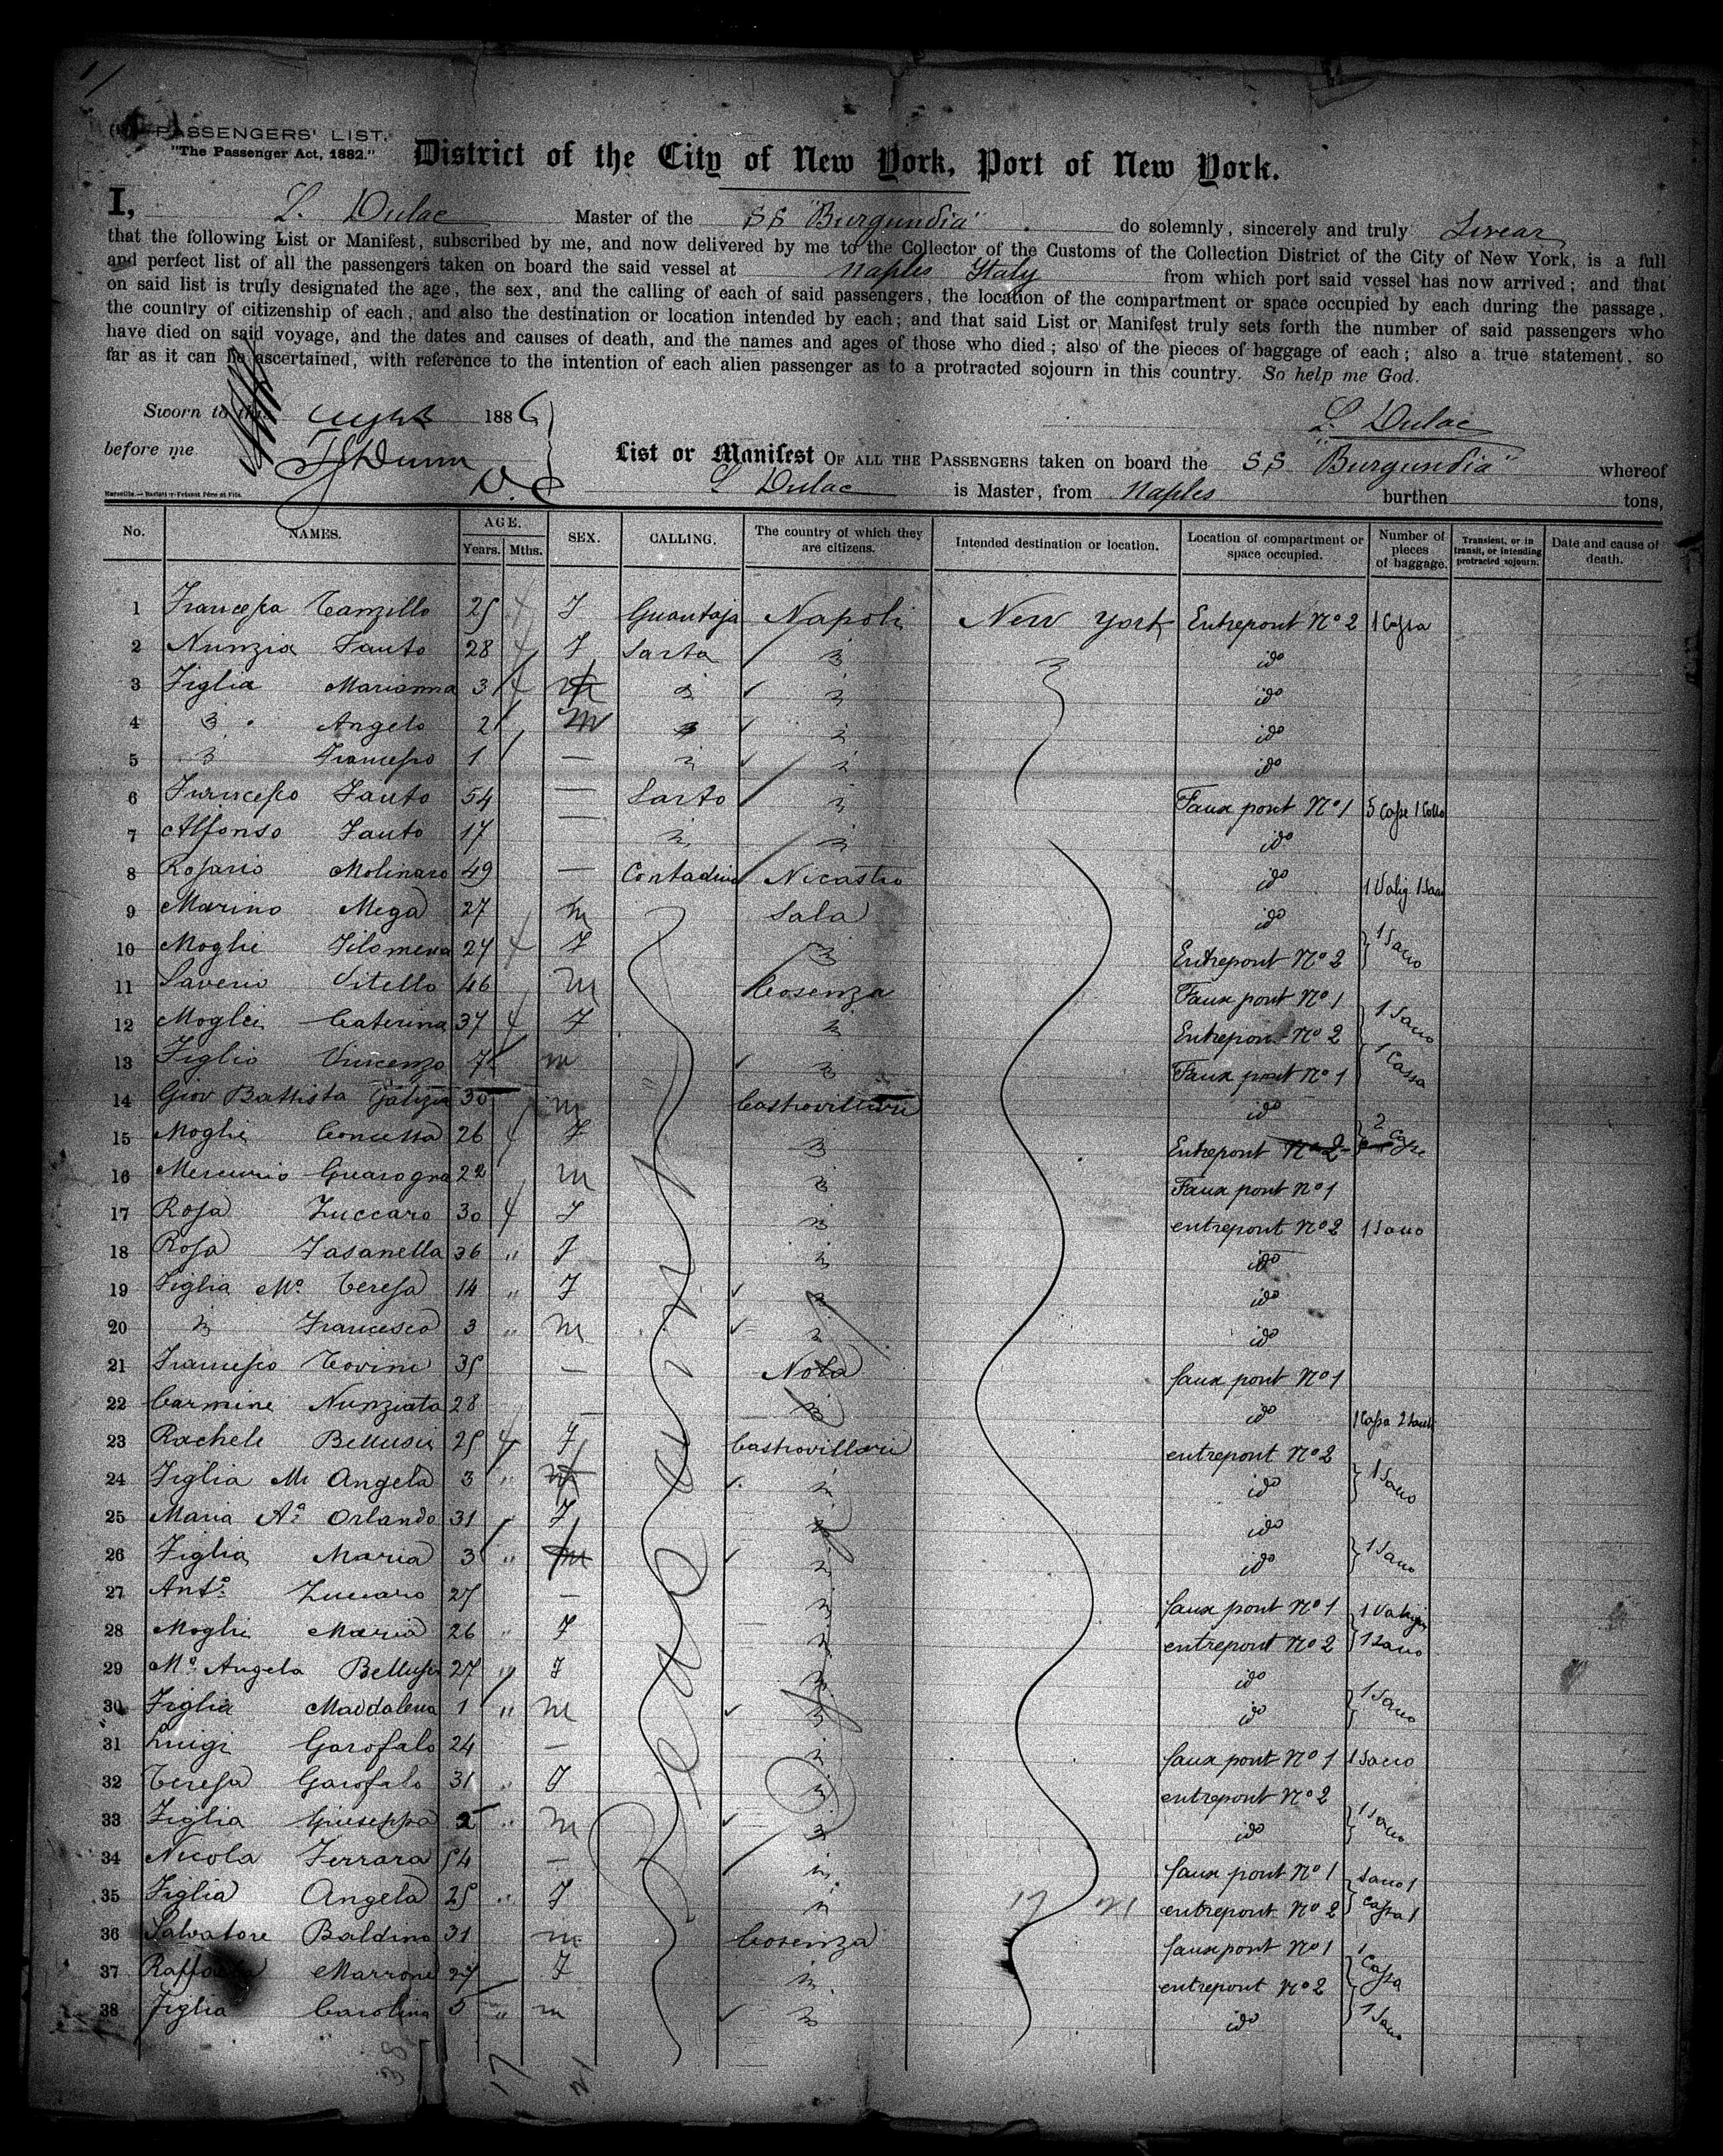 PASSENGERS' LIST.
"The Passenger Act, 1882."
District of the City of New York, Port of New York.
I, L. Dulac Master of the SS "Burgundia" do solemnly, sincerely and truly Swear
that the following List or Manifest, subscribed by me, and now delivered by me to the Collector of the Customs of the Collection District of the City of New York, is a full
and perfect list of all the passengers taken on board the said vessel at Naples Italy from which port said vessel has now arrived; and that
on said list is truly designated the age, the sex, and the calling of each of said passengers, the location of the compartment or space occupied by each during the passage,
the country of citizenship of each, and also the destination or location intended by each; and that said List or Manifest truly sets forth the number of said passengers who
have died on said voyage, and the dates and causes of death, and the names and ages of those who died; also of the pieces of baggage of each; also a true statement, so
far as it can be ascertained, with reference to the intention of each alien passenger as to a protracted sojourn in this country. So help me God.
Sworn to this 1886 L. Dulac
before me Dunn D.C
List or Manifest OF ALL THE PASSENGERS taken on board the SS "Burgundia" whereof
L Dulac is Master, from Naples burthen tons,
No. NAMES. AGE. Years. Mths. SEX. CALLING. The country of which they are citizens. Intended destination or location. Location of compartment or space occupied. Number of pieces of baggage. Transient, or in transit, or intending protracted sojourn. Date and cause of death.
1 Francesca Tanzillo 25 F Guantaja Napoli New York Entrepont No 2 1 Cassa
2 Nunzia Fauto 28 F Sarta ido
3 Figlia Marianna 3 ido
4 Angelo 2 M ido
5 Francesco 1 — ido
6 Francesco Fauto 54 — Sarto Faux pont No 1 5 Casse 1 Collo
7 Alfonso Fauto 17 — ido
8 Rosario Molinaro 49 — Contadino Nicastro ido 1 Valig 1 Sacco
9 Marino Mega 27 M Sala ido
10 Moglie Filomena 24 F Entrepont No 2 1 Sacco
11 Saverio Vitello 46 M Cosenza Faux pont No 1
12 Moglie Caterina 37 F Entrepont No 2 1 Sacco
13 Figlio Vincenzo 7 m Faux pont No 1 1 Cassa
14 Giov Battista Galizia 30 m Castrovillari ido
15 Moglie Concetta 26 F Entrepont No 2 2 Casse
16 Mercurio Guaragna 22 m Faux pont No 1
17 Rosa Zuccaro 30 F entrepont No 2 1 Sacco
18 Rosa Fasanella 36 " F ido
19 Figlia Ma Teresa 14 " F ido
20 Francesco 3 " M ido
21 Francesco Tovini 35 — Nola faux pont No 1
22 Carmine Nunziata 28 — ido 1 Cassa 2 Sacchi
23 Rachele Bellusci 25 F Castrovillari entrepont No 2
24 Figlia M Angela 3 " ido 1 Sacco
25 Maria Aa Orlando 31 F ido
26 Figlia Maria 3 " ido 1 Sacco
27 Anto Zuccaro 27 — faux pont No 1 1 Valigia
28 Moglie Maria 26 " F entrepont No 2 1 Sacco
29 Ma Angela Bellusci 27 " F ido
30 Figlia Maddalena 1 " M ido 1 Sacco
31 Luigi Garofalo 24 — faux pont No 1 1 Sacco
32 Teresa Garofalo 31 " F entrepont No 2
33 Figlia Giuseppa 2 " M ido 1 Sacco
34 Nicola Ferrara 54 — faux pont No 1 Sacco 1
35 Figlia Angela 25 " F entrepont No 2 Cassa 1
36 Salvatore Baldino 31 m Cosenza faux pont No 1
37 Marrone 27 F entrepont No 2 1 Cassa
38 Figlia Carolina 5 " m ido 1 Sacco
38 17 21